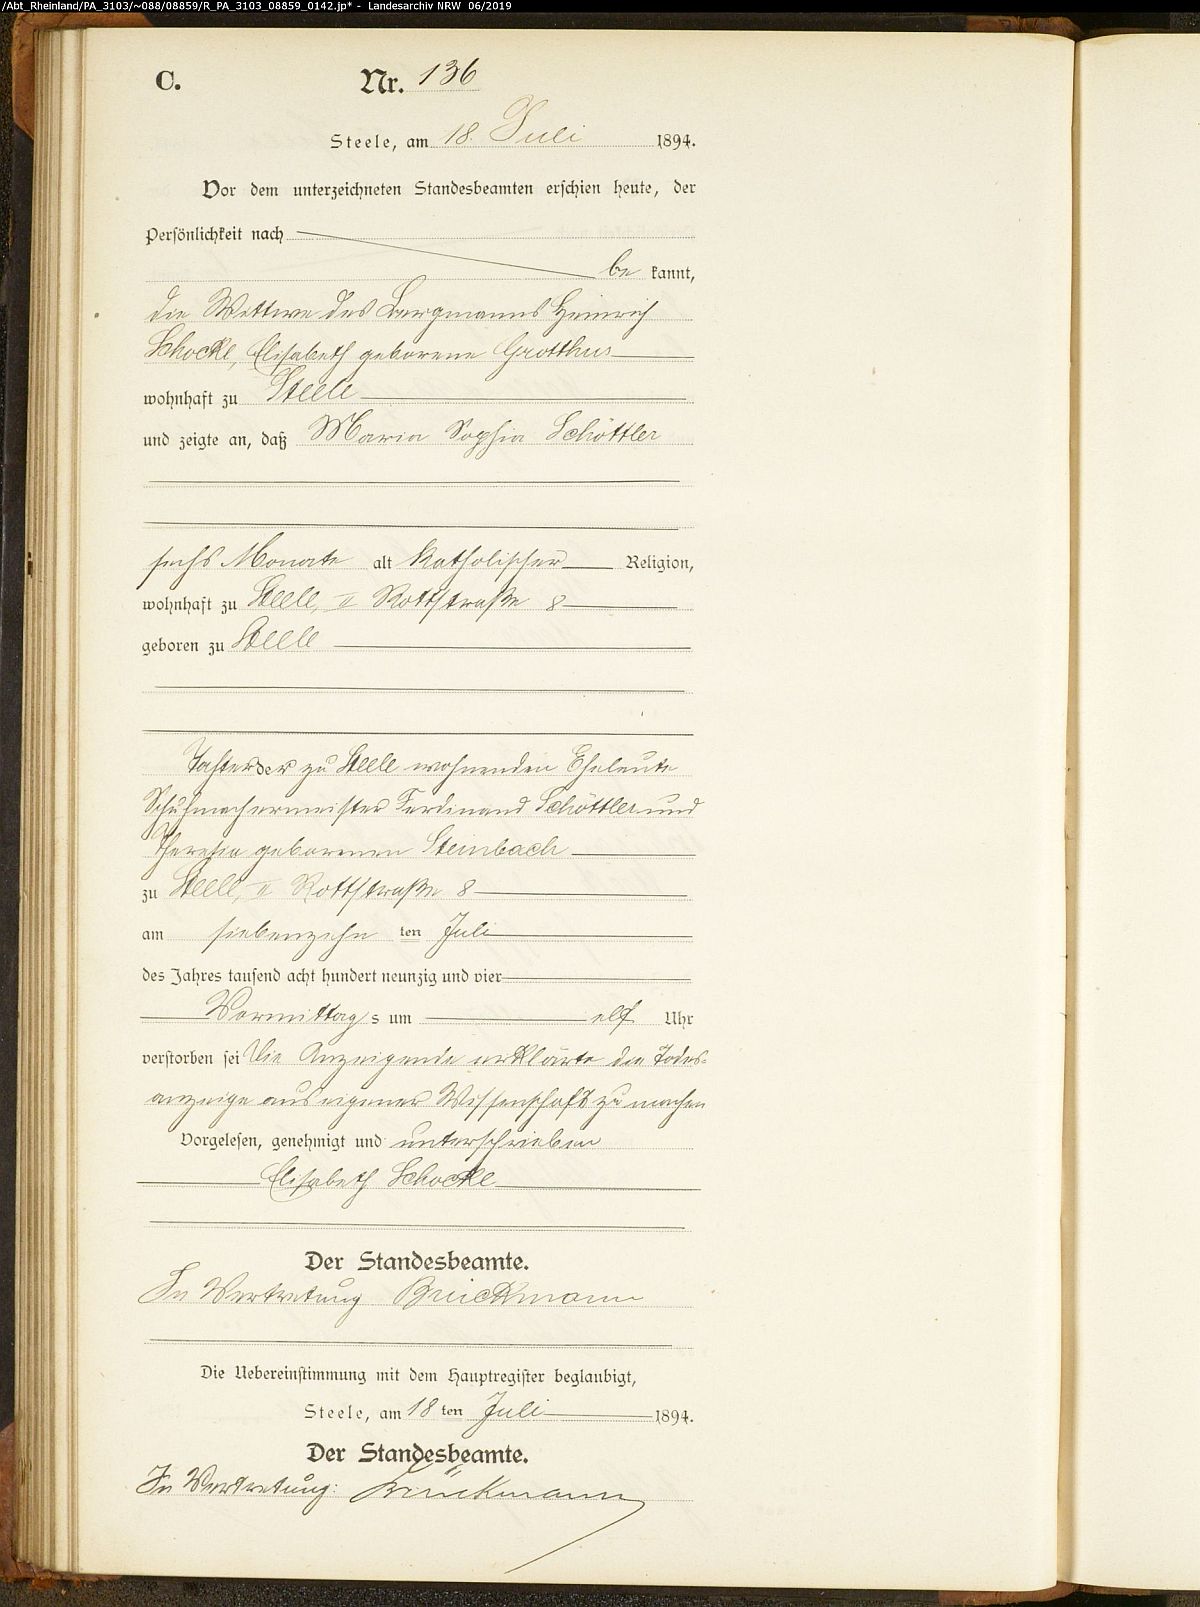 /Abt_Rheinland/PA_3103/~088/08859/R_PA_3103_08859_0142.jp* - Landesarchiv NRW 06/2019
C. Nr. 136
Steele, am 18. Juli 1894.
Vor dem unterzeichneten Standesbeamten erschien heute, der
Persönlichkeit nach
be kannt,
die Wittwe des Bergmanns Heinrich
Schocke, Elisabeth geborene Grotthus
wohnhaft zu Steele
und zeigte an, daß Maria Sophia Schöttler
sechs Monate alt katholischer Religion,
wohnhaft zu Steele, II Rottstraße 8
geboren zu Steele
Tochter der zu Steele wohnenden Eheleute
Schuhmachermeister Ferdinand Schöttler und
Theresia geborenen Steinbach
zu Steele, II Rottstraße 8
am siebenzehn ten Juli
des Jahres tausend acht hundert neunzig und vier
Vormittag s um elf Uhr
verstorben sei Die Anzeigende erklärte die Todes-
anzeige aus eigener Wissenschaft zu machen
Vorgelesen, genehmigt und unterschrieben
Elisabeth Schocke
Der Standesbeamte.
In Vertretung Brückmann
Die Uebereinstimmung mit dem Hauptregister beglaubigt,
Steele, am 18 ten Juli 1894.
Der Standesbeamte.
In Vertretung: Brückmann